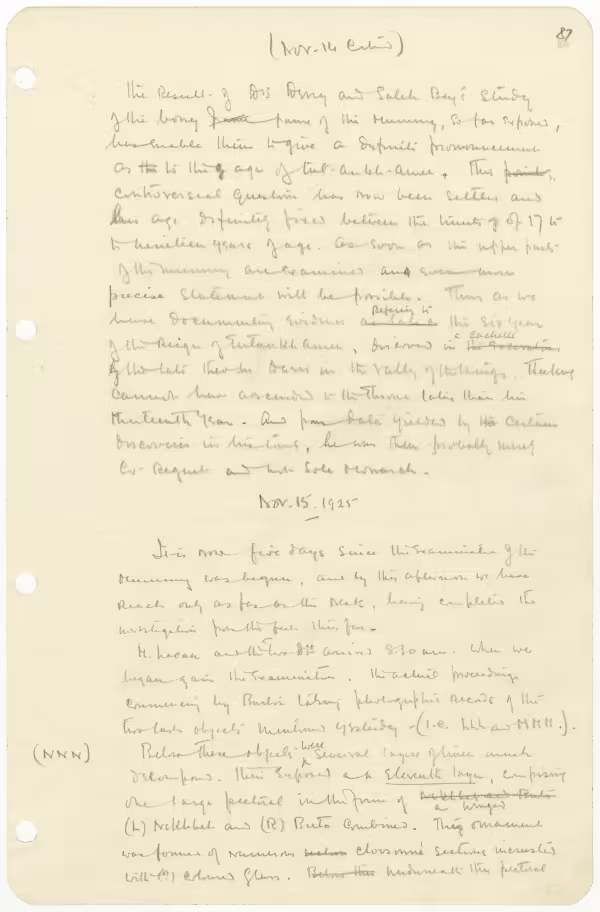 87
(Nov. 14 Contind)
The Result of Drs Derry and Saleh Bey's study
of the boney frame of the Mummy, so far exposed,
has enable them to give a definite pronouncement
as to the age of Tut-ankh-Amen. This
controversial question has now been settled and
his age definitely fixed between the limits of 17 to
to nineteen years of age. As soon as the upper parts
of the mummy are examined an even more
precise statement will be possible. Thus as we
have documentary evidence refering to the six year
of the Reign of Tutankhamen, discovered in a cachette
of the late Theodore Davis in the Valley of the Kings. The King
cannot have ascended to the Throne later than his
thirteenth year. And from data yielded by certain
discoveries in his tomb, he was then probably merely
Co-Regent and not Sole Monarch.
Nov. 15. 1925
It is now five days since the examination of the
mummy was begun, and by this afternoon we have
reach only as far as the neck, having completed the
investigation from the feet thus far.
M. Lacau and the two Drs arrived 8.30 am. when we
began again the examination. The actual proceedings
commencing by Burton taking photographic records of the
two last objects mentioned yesterday - (i.e. LLL and MMM.).
(NNN) Below these objects were several layers of linen much
decomposed. These exposed a a Eleventh layer, comprising
one large pectoral in the form of a winged
(L) Nekhbet and (R) Buto combined. This ornament
was formed of numerous cloisonné sections incrusted
with (?) coloured glass. Below this underneath this pectoral